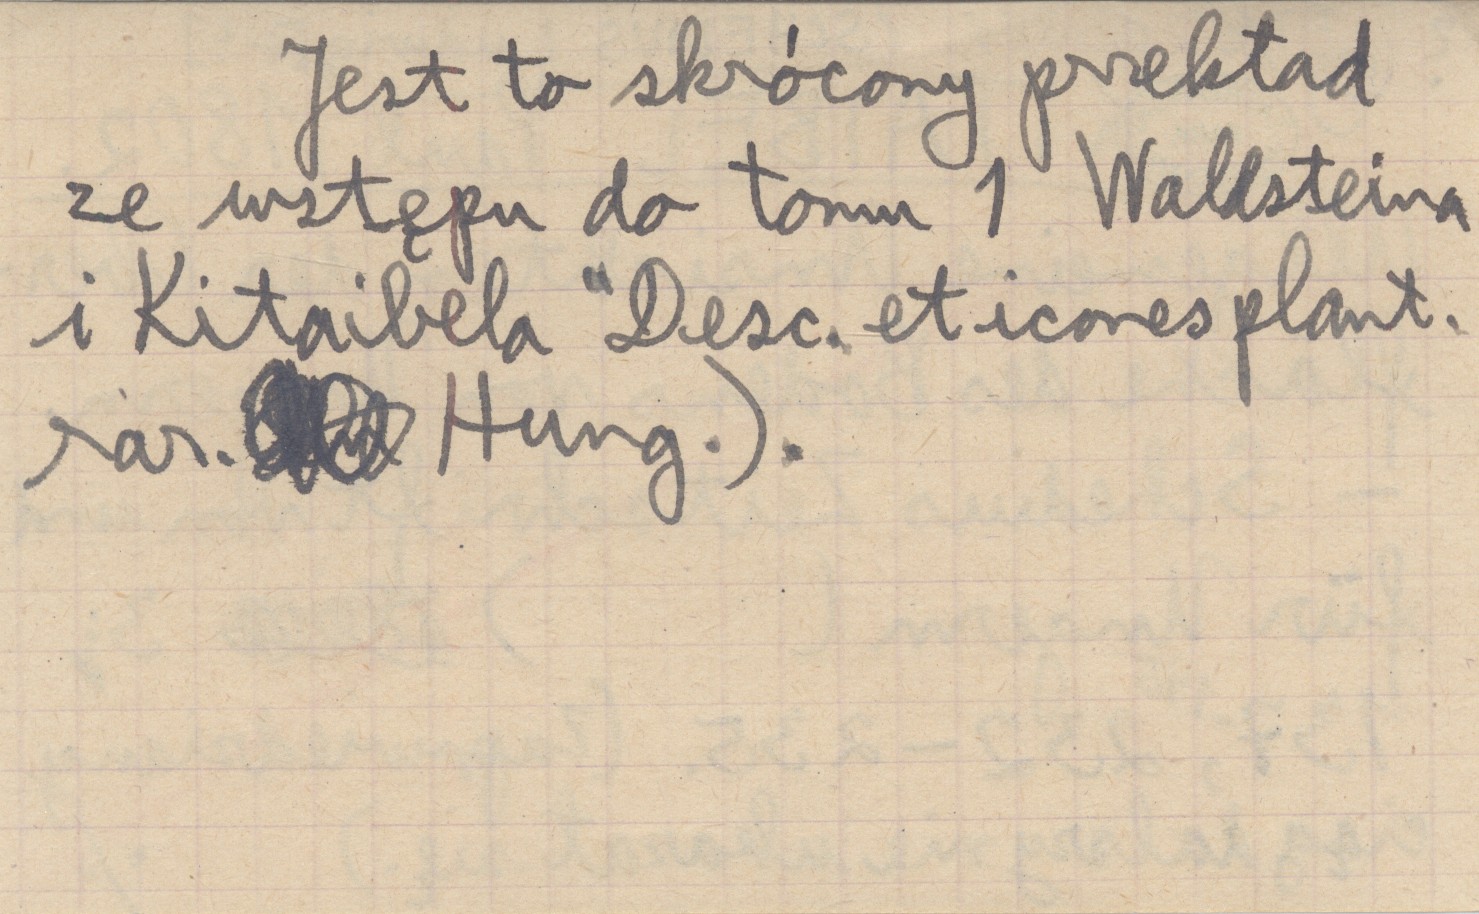 Jest to skrócony przekład
ze wstępu do tomu 1 Waldsteina
i Kitaibela "Desc. et icones plant.
rar. Hung.).